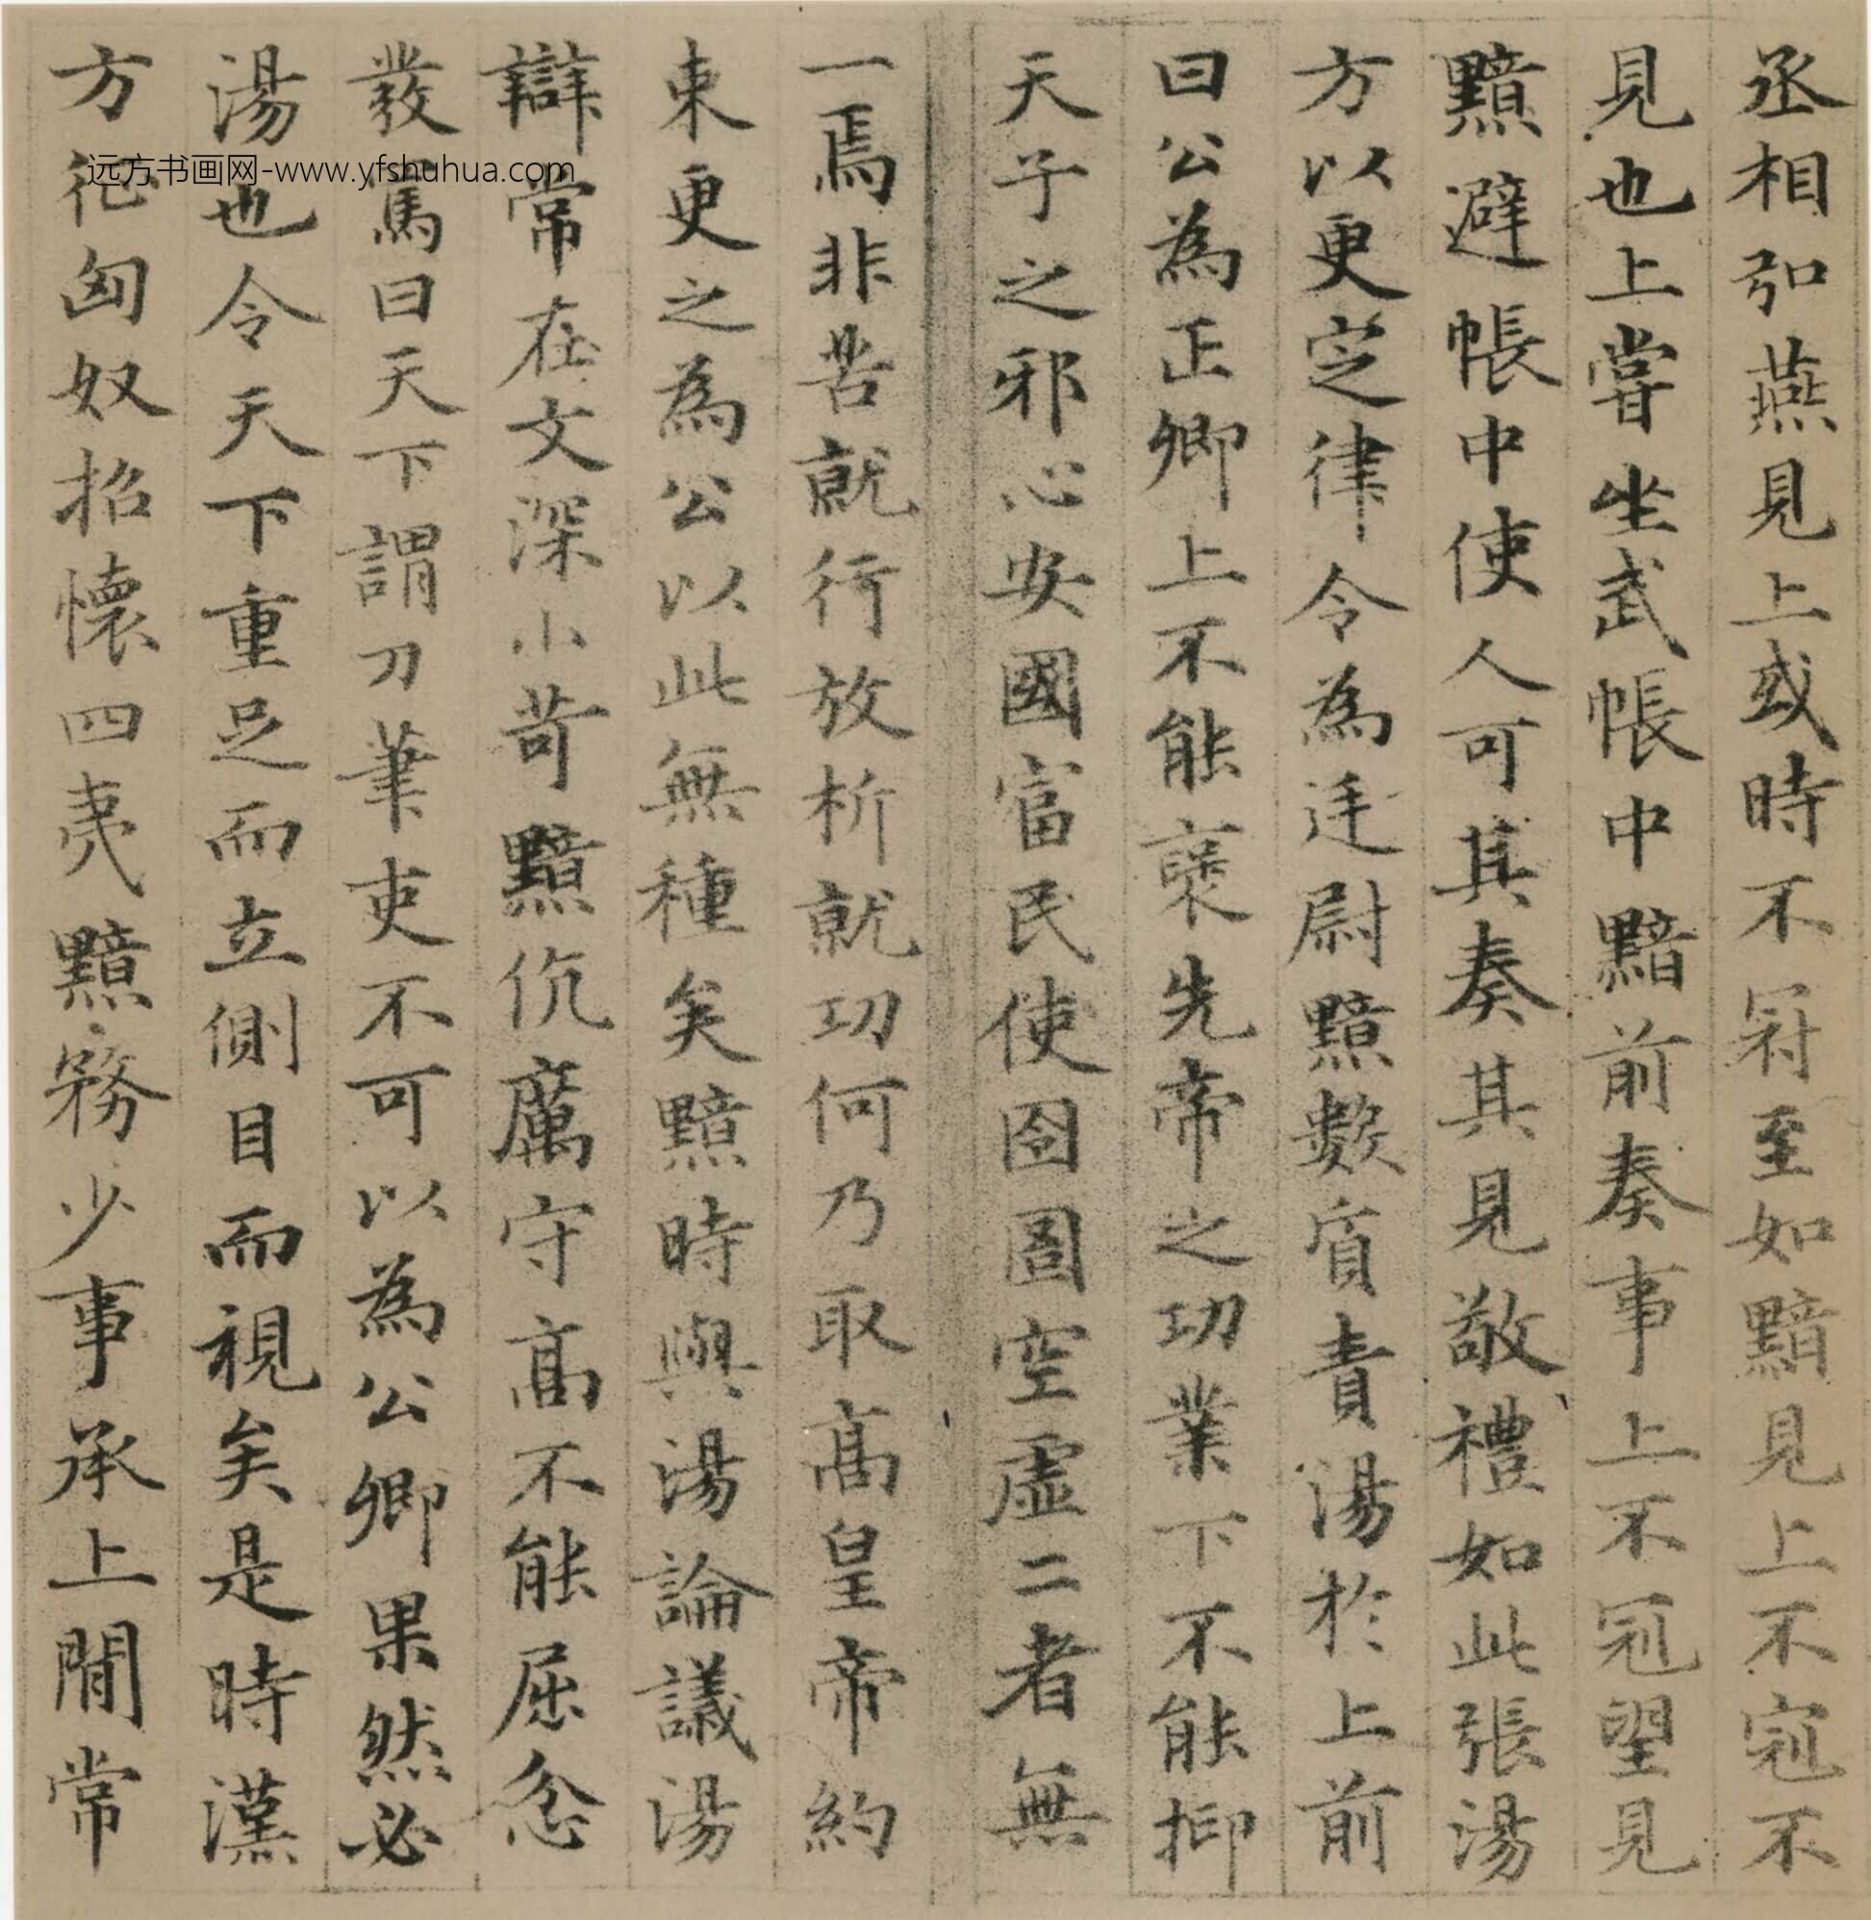 丞相弘燕見上或時不冠至如黯見上不冠不
見也上嘗坐武帳中黯前奏事上不冠望見
黯避帳中使人可其奏其見敬禮如此張湯
方以更定律令為廷尉黯數質責湯於上前
曰公為正卿上不能襃先帝之功業下不能抑
天子之邪心安國富民使囹圄空虛二者無
一焉非苦就行放析就功何乃取高皇帝約
束更之為公以此無種矣黯時與湯論議湯
辯常在文深小苛黯伉厲守高不能屈忿
發罵曰天下謂刀筆吏不可以為公卿果然必
湯也令天下重足而立側目而視矣是時漢
方征匈奴招懷四夷黯務少事承上閒常
远方书画网-www.yfshuhua.com